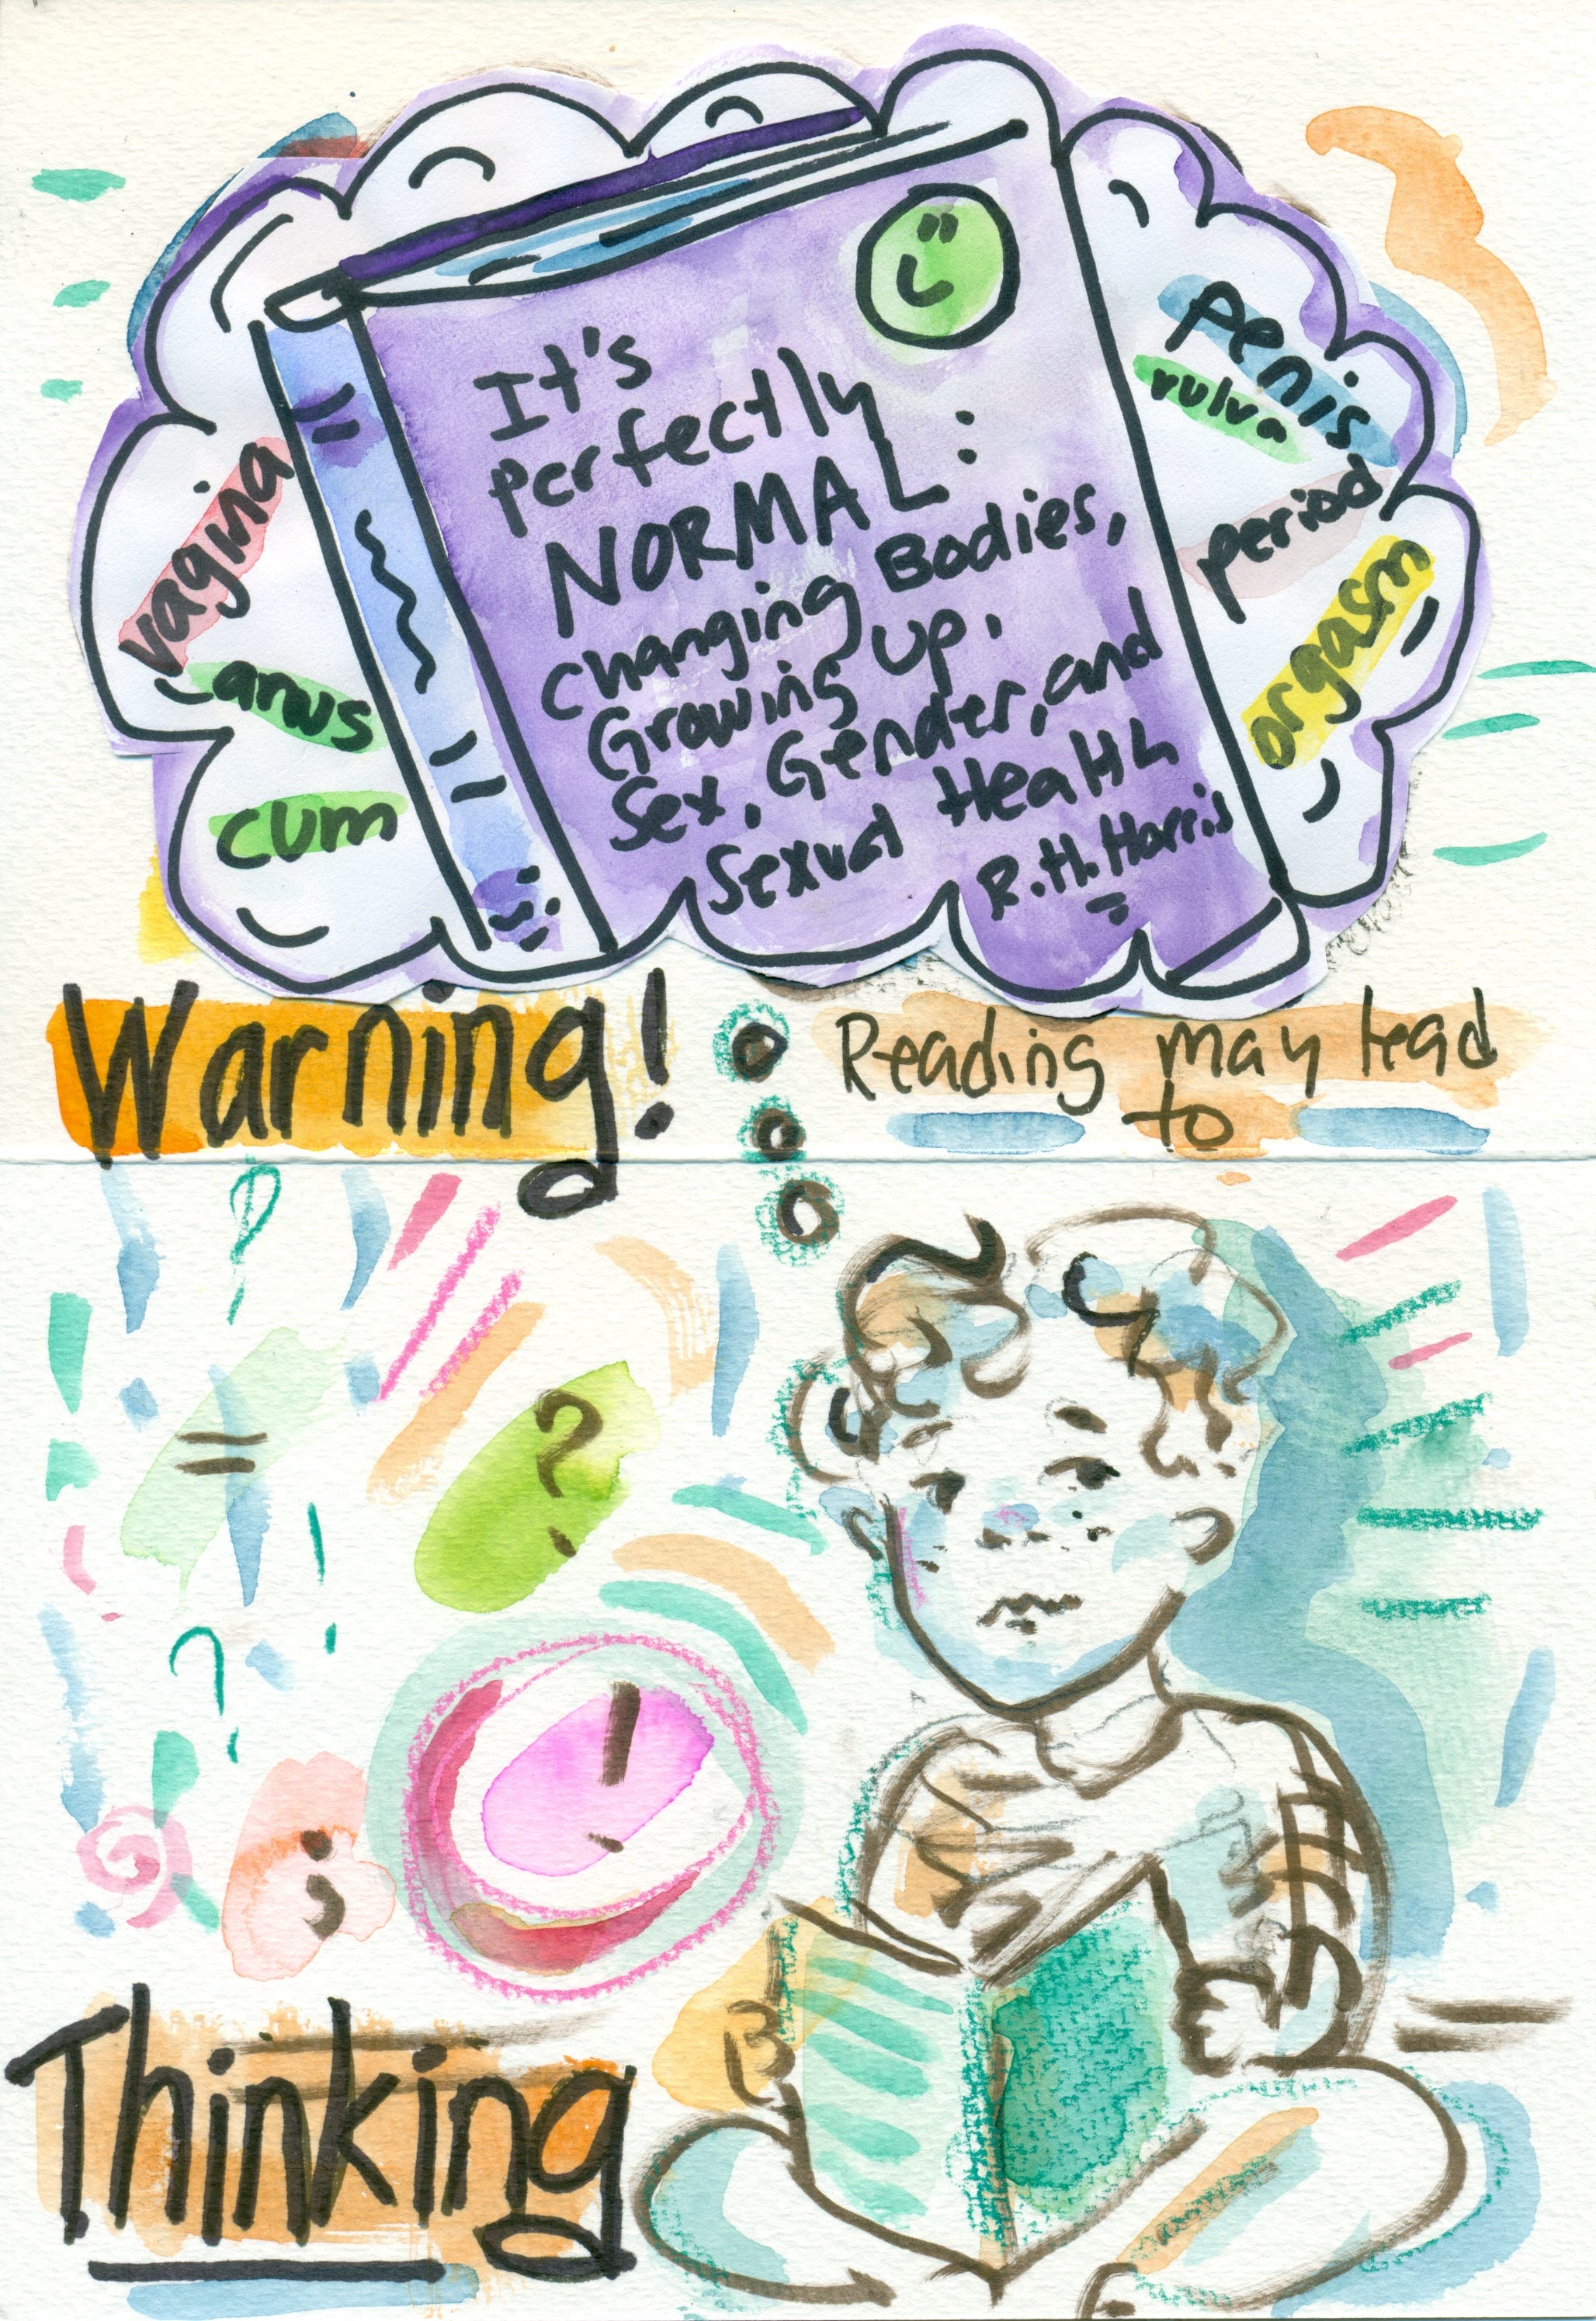 It's
perfectly
NORMAL:
changing Bodies,
Growing up,
Sex, Gender, and
Sexual Health
R.H. Harris
vagina
anus
cum
penis
vulva
period
orgasm
Warning!
Reading may lead
to
?
?
?
!
!
;
Thinking